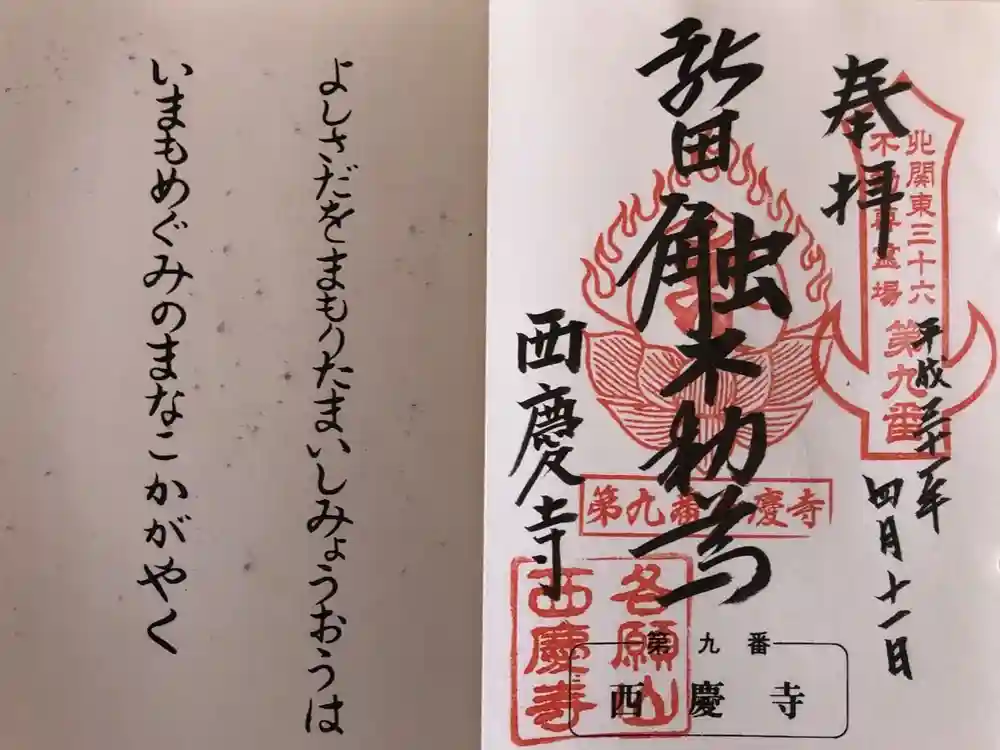 奉拝
北関東三十六
不動尊霊場
第九番
平成三十一年
四月十一日
新田触不動尊
第九番 慶寺
西慶寺
各願山
西慶寺
第九番
西慶寺
よしさだをまもりたまいしみょうおうは
いまもめぐみのまなこかがやく